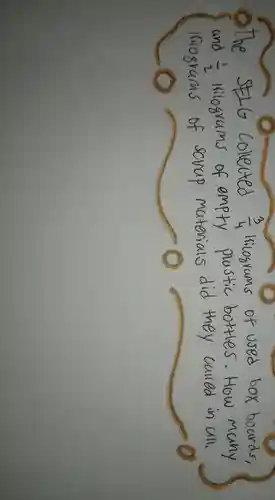 The SEIG Collected 3/4 kilograms of used box boards,
and 1/2 kilograms of empty plastic bottles. How many
kilograms of scrap materials did they called in all.